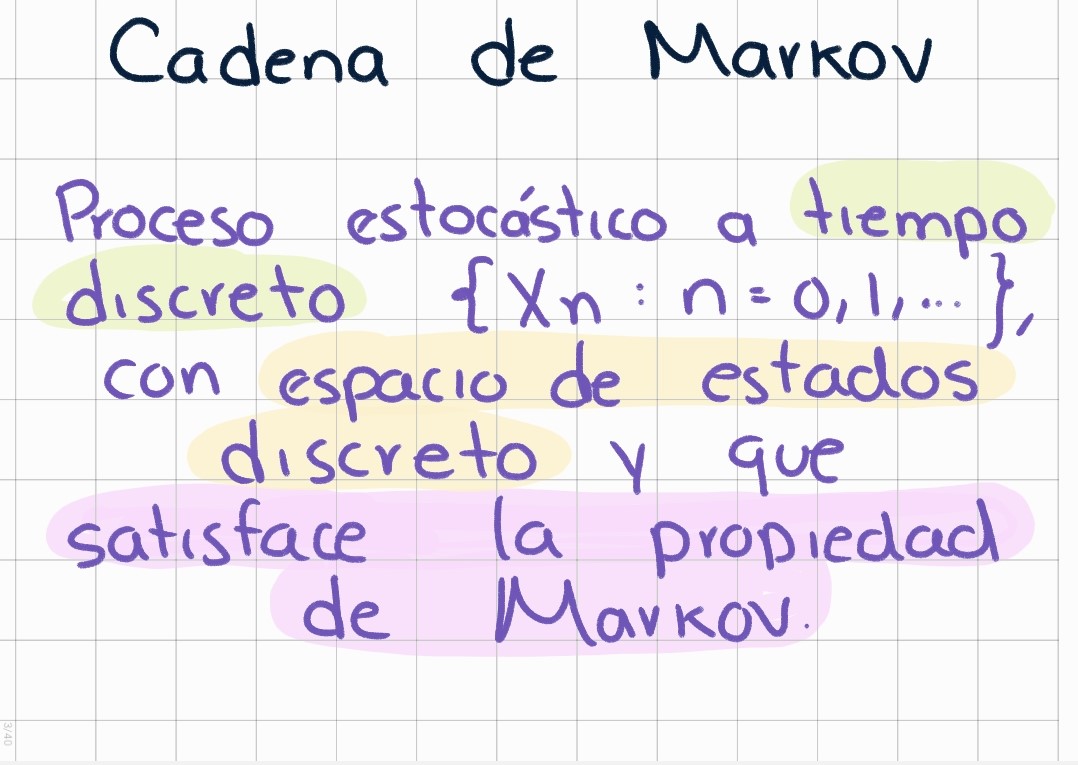 Cadena de Markov
Proceso estocástico a tiempo
discreto {Xn : n = 0, 1, ... },
con espacio de estados
discreto y que
satisface la propiedad
de Markov.
3/40